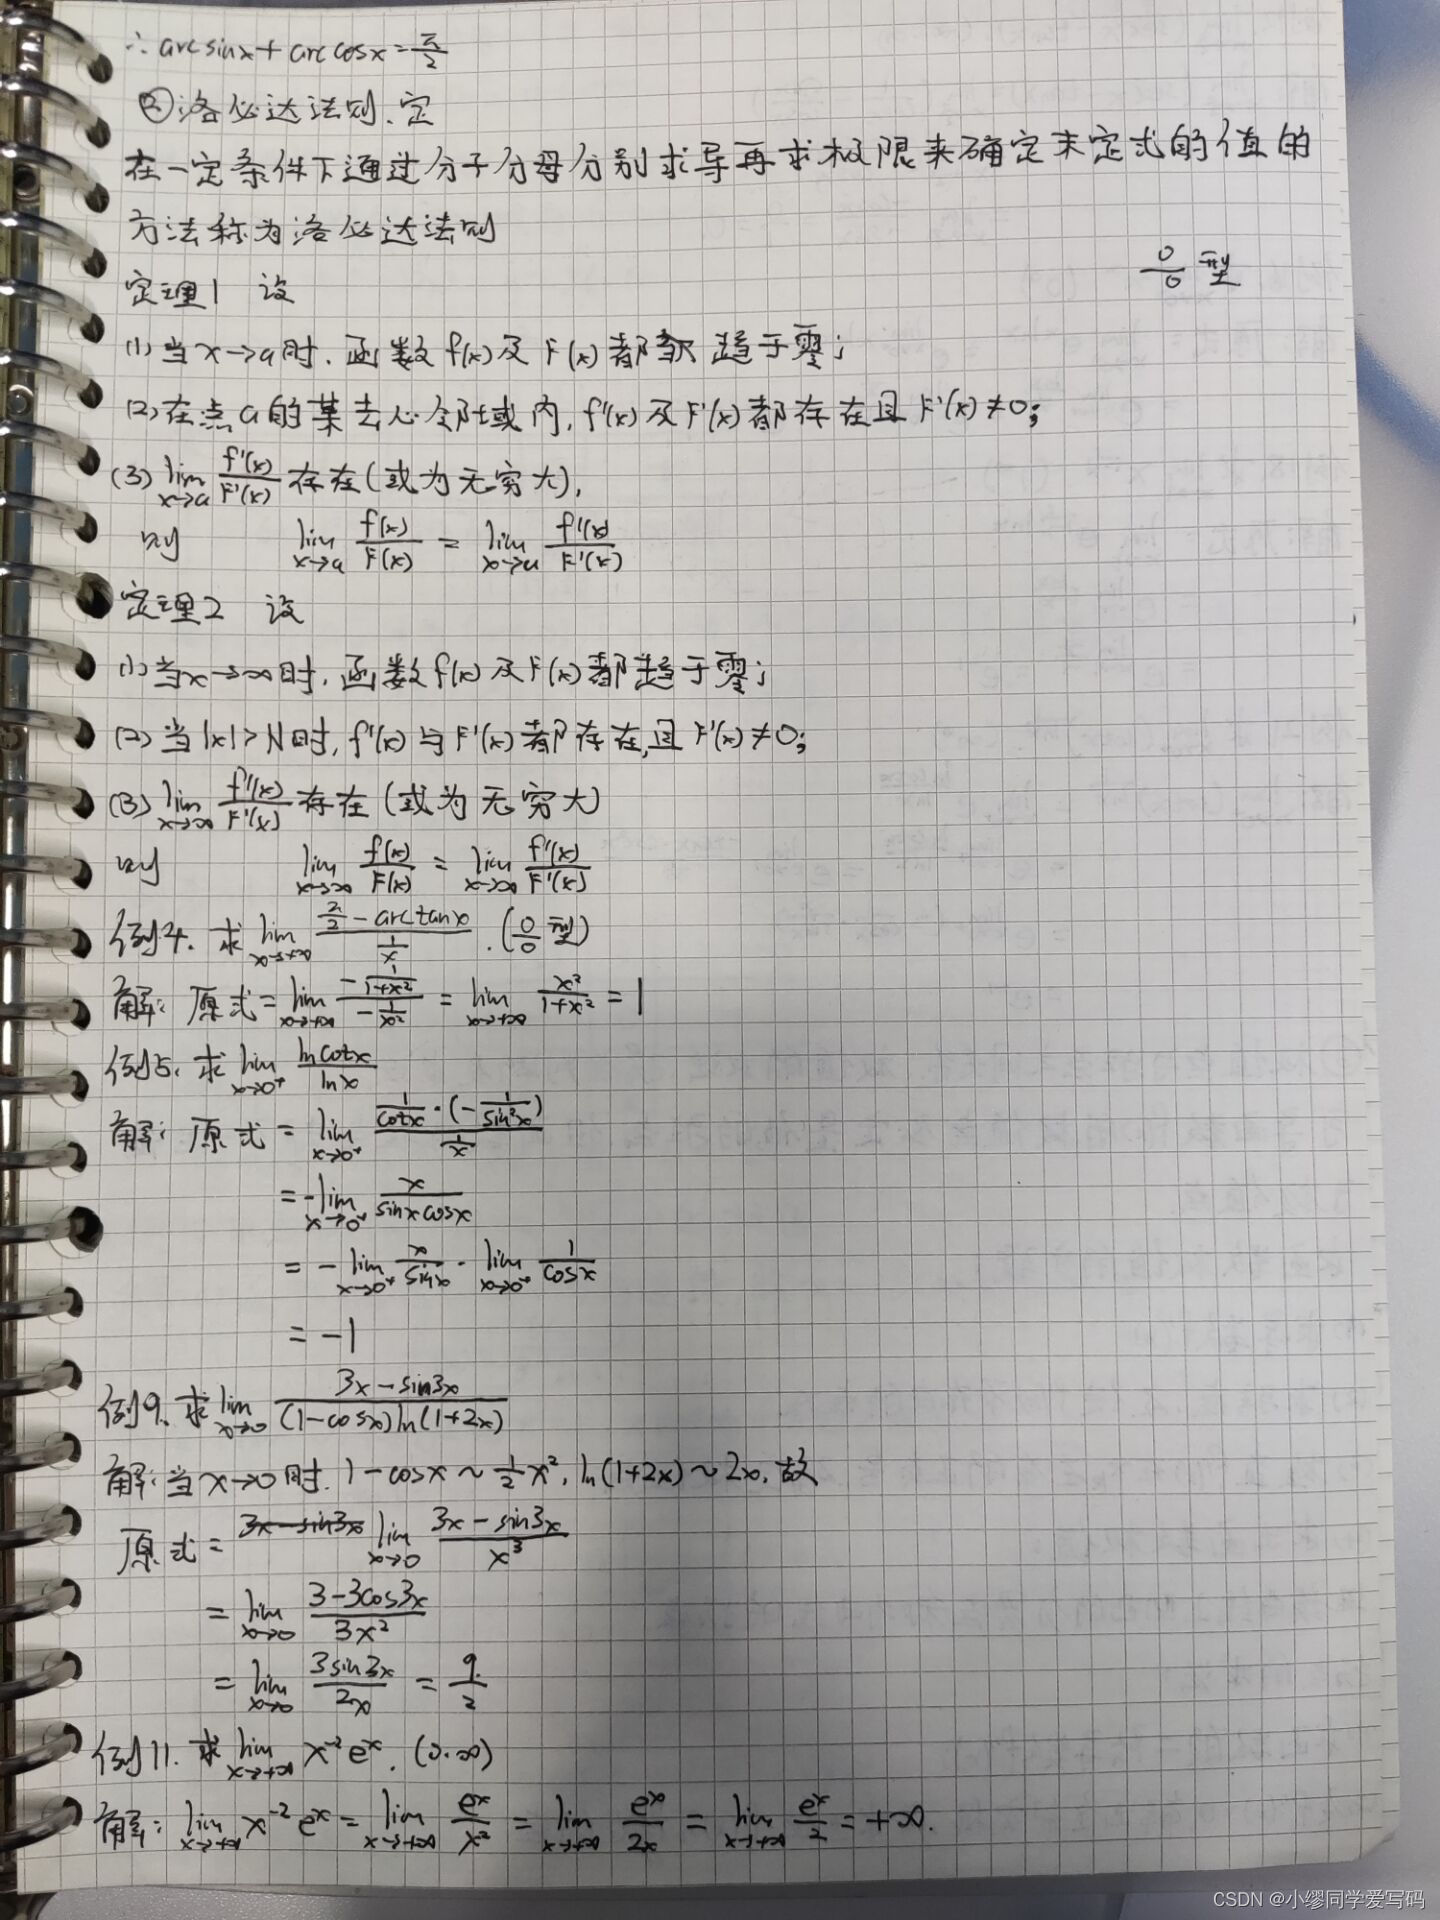 ∴ arcsinx + arccosx = π/2
②洛必达法则.定
在一定条件下通过分子分母分别求导再求极限来确定未定式的值的
方法称为洛必达法则
0/0 型
定理1 设
(1)当x→a时.函数f(x)及F(x)都趋于零;
(2)在点a的某去心邻域内,f'(x)及F'(x)都存在且F'(x)≠0;
(3) lim x→a f'(x)/F'(x) 存在(或为无穷大),
则 lim x→a f(x)/F(x) = lim x→a f'(x)/F'(x)
定理2 设
(1)当x→∞时,函数f(x)及F(x)都趋于零;
(2)当|x|>N时,f'(x)与F'(x)都存在,且F'(x)≠0;
(3) lim x→∞ f'(x)/F'(x) 存在(或为无穷大)
则 lim x→∞ f(x)/F(x) = lim x→∞ f'(x)/F'(x)
例4. 求 lim x→+∞ (π/2 - arctanx)/(1/x) . (0/0 型)
解: 原式 = lim x→+∞ (-1/(1+x²))/(-1/x²) = lim x→+∞ x²/(1+x²) = 1
例5. 求 lim x→0⁺ lncotx/lnx
解: 原式 = lim x→0⁺ (1/cotx · (-1/sin²x))/(1/x)
= -lim x→0⁺ x/(sinxcosx)
= -lim x→0⁺ x/sinx · lim x→0⁺ 1/cosx
= -1
例9. 求 lim x→0 (3x-sin3x)/((1-cosx)ln(1+2x))
解:当x→0时.1-cosx ~ 1/2 x², ln(1+2x) ~ 2x, 故
原式 = 3x-sin3x lim x→0 (3x-sin3x)/x³
= lim x→0 (3-3cos3x)/3x²
= lim x→0 3sin3x/2x = 9/2
例11. 求 lim x→+∞ x⁻²eˣ. (0·∞)
解: lim x→+∞ x⁻²eˣ = lim x→+∞ eˣ/x² = lim x→+∞ eˣ/2x = lim x→+∞ eˣ/2 = +∞.
CSDN @小缪同学爱写码